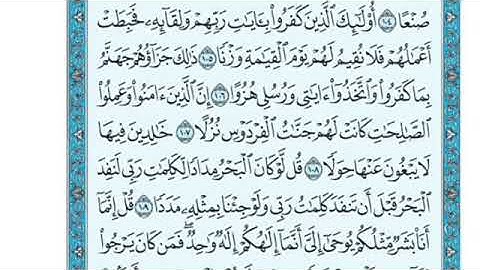 صُنْعًا ١٠٤ أُو۟لَٰٓئِكَ ٱلَّذِينَ كَفَرُوا۟ بِـَٔايَٰتِ رَبِّهِمْ وَلِقَآئِهِۦ فَحَبِطَتْ
أَعْمَٰلُهُمْ فَلَا نُقِيمُ لَهُمْ يَوْمَ ٱلْقِيَٰمَةِ وَزْنًا ١٠٥ ذَٰلِكَ جَزَآؤُهُمْ جَهَنَّمُ
بِمَا كَفَرُوا۟ وَٱتَّخَذُوٓا۟ ءَايَٰتِى وَرُسُلِى هُزُوًا ١٠٦ إِنَّ ٱلَّذِينَ ءَامَنُوا۟ وَعَمِلُوا۟
ٱلصَّٰلِحَٰتِ كَانَتْ لَهُمْ جَنَّٰتُ ٱلْفِرْدَوْسِ نُزُلًا ١٠٧ خَٰلِدِينَ فِيهَا
لَا يَبْغُونَ عَنْهَا حِوَلًا ١٠٨ قُل لَّوْ كَانَ ٱلْبَحْرُ مِدَادًا لِّكَلِمَٰتِ رَبِّى لَنَفِدَ
ٱلْبَحْرُ قَبْلَ أَن تَنفَدَ كَلِمَٰتُ رَبِّى وَلَوْ جِئْنَا بِمِثْلِهِۦ مَدَدًا ١٠٩ قُلْ إِنَّمَآ
أَنَا۠ بَشَرٌ مِّثْلُكُمْ يُوحَىٰٓ إِلَىَّ أَنَّمَآ إِلَٰهُكُمْ إِلَٰهٌ وَٰحِدٌ فَمَن كَانَ يَرْجُوا۟